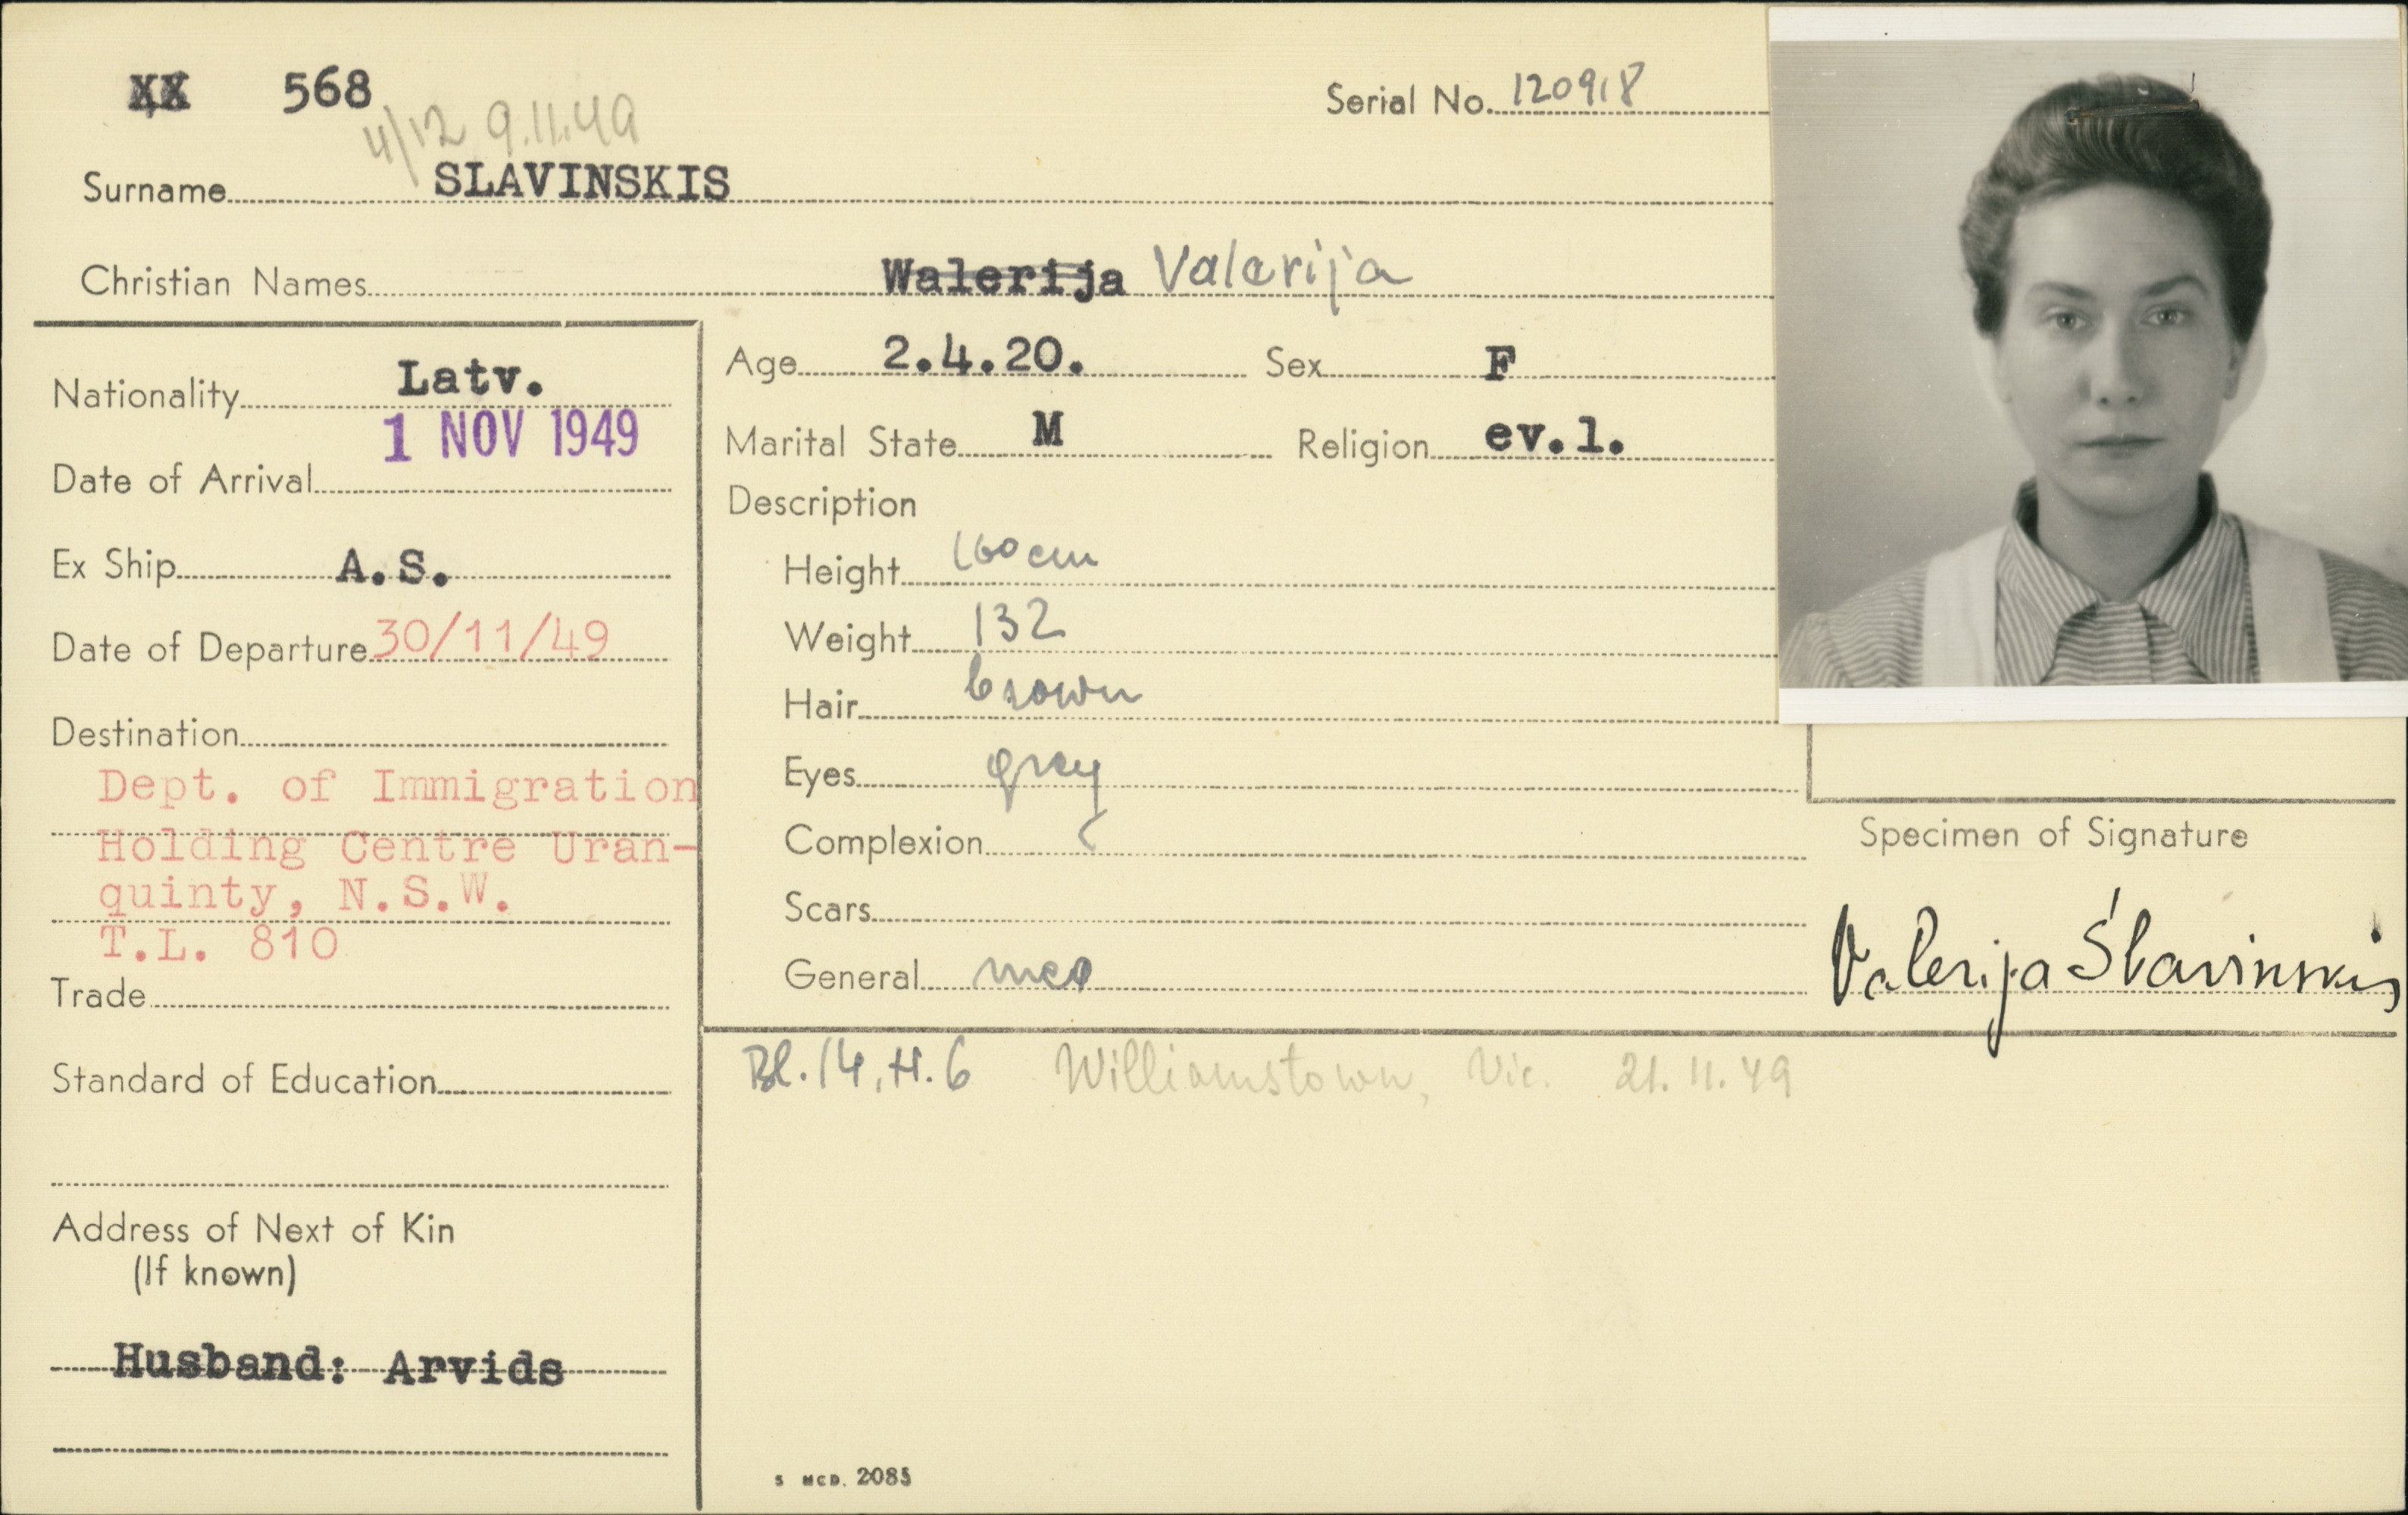 XX 568
4/12 9.11.49
Serial No. 120918
Surname SLAVINSKIS
Christian Names Walerija Valerija
Nationality Latv.
Date of Arrival 1 NOV 1949
Ex Ship A.S.
Date of Departure 30/11/49
Destination
Dept. of Immigration
Holding Centre Uran-
quinty, N.S.W.
T.L. 810
Trade
Standard of Education
Address of Next of Kin
(If known)
Husband: Arvids
Age 2.4.20. Sex F
Marital State M Religion ev.l.
Description
Height 160 cm
Weight 132
Hair brown
Eyes grey
Complexion
Scars
General
Specimen of Signature
Valerija Slavinskis
Bl.14, H.6 Williamstown, Vic. 21.11.49
S MCD. 2085